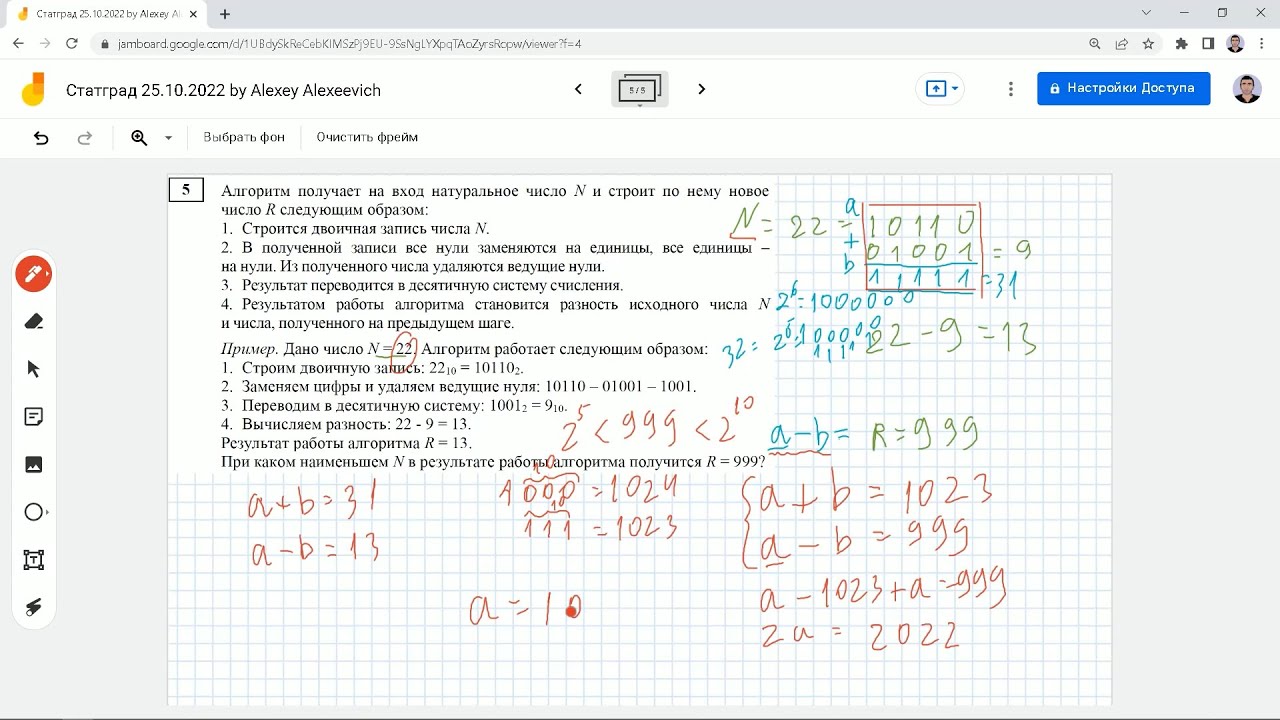 Статград 25.10.2022 by Alexey Al
jamboard.google.com/d/1UBdySkReCebKIMSzPj9EU-9SsNgLYXpqTAoZyrsRopw/viewer?f=4
Статград 25.10.2022 by Alexey Alexeevich
5 / 5
Настройки Доступа
Выбрать фон
Очистить фрейм
5
Алгоритм получает на вход натуральное число N и строит по нему новое
число R следующим образом:
1. Строится двоичная запись числа N.
2. В полученной записи все нули заменяются на единицы, все единицы –
на нули. Из полученного числа удаляются ведущие нули.
3. Результат переводится в десятичную систему счисления.
4. Результатом работы алгоритма становится разность исходного числа N
и числа, полученного на предыдущем шаге.
Пример. Дано число N = 22. Алгоритм работает следующим образом:
1. Строим двоичную запись: 22₁₀ = 10110₂.
2. Заменяем цифры и удаляем ведущие нуля: 10110 – 01001 – 1001.
3. Переводим в десятичную систему: 1001₂ = 9₁₀.
4. Вычисляем разность: 22 - 9 = 13.
Результат работы алгоритма R = 13.
При каком наименьшем N в результате работы алгоритма получится R = 999?
N = 22 = a 10110
+
b 01001 = 9
11111 = 31
2⁶ = 1000000
32 = 2⁵ = 100000
11111
22 - 9 = 13
2⁵ < 999 < 2¹⁰
a - b = R = 999
a + b = 31
a - b = 13
10
1 000 = 1024
10
111 = 1023
a + b = 1023
a - b = 999
a - 1023 + a = 999
2a = 2022
a = 10